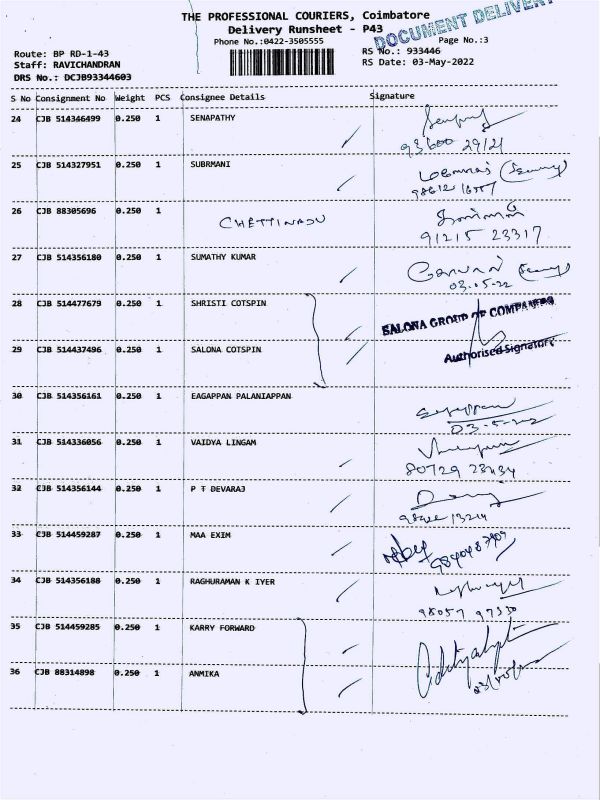 THE PROFESSIONAL COURIERS, Coimbatore
Delivery Runsheet - P43
DOCUMENT DELIVERY
Phone No.:0422-3505555
Page No.:3
Route: BP RD-1-43
RS No.: 933446
Staff: RAVICHANDRAN
RS Date: 03-May-2022
DRS No.: DCJB93344603
S No Consignment No Weight PCS Consignee Details Signature
24 CJB 514346499 0.250 1 SENAPATHY
93600 29121
25 CJB 514327951 0.250 1 SUBRMANI
26 CJB 88305696 0.250 1 CHETTINADU
91215 23317
27 CJB 514356180 0.250 1 SUMATHY KUMAR
03.05-22
28 CJB 514477679 0.250 1 SHRISTI COTSPIN
SALONA GROUP OF COMPANIES
29 CJB 514437496 0.250 1 SALONA COTSPIN
Authorised Signatory
30 CJB 514356161 0.250 1 EAGAPPAN PALANIAPPAN
31 CJB 514336056 0.250 1 VAIDYA LINGAM
80729 23434
32 CJB 514356144 0.250 1 P T DEVARAJ
33 CJB 514459287 0.250 1 MAA EXIM
34 CJB 514356188 0.250 1 RAGHURAMAN K IYER
98057 97350
35 CJB 514459285 0.250 1 KARRY FORWARD
36 CJB 88314898 0.250 1 ANMIKA